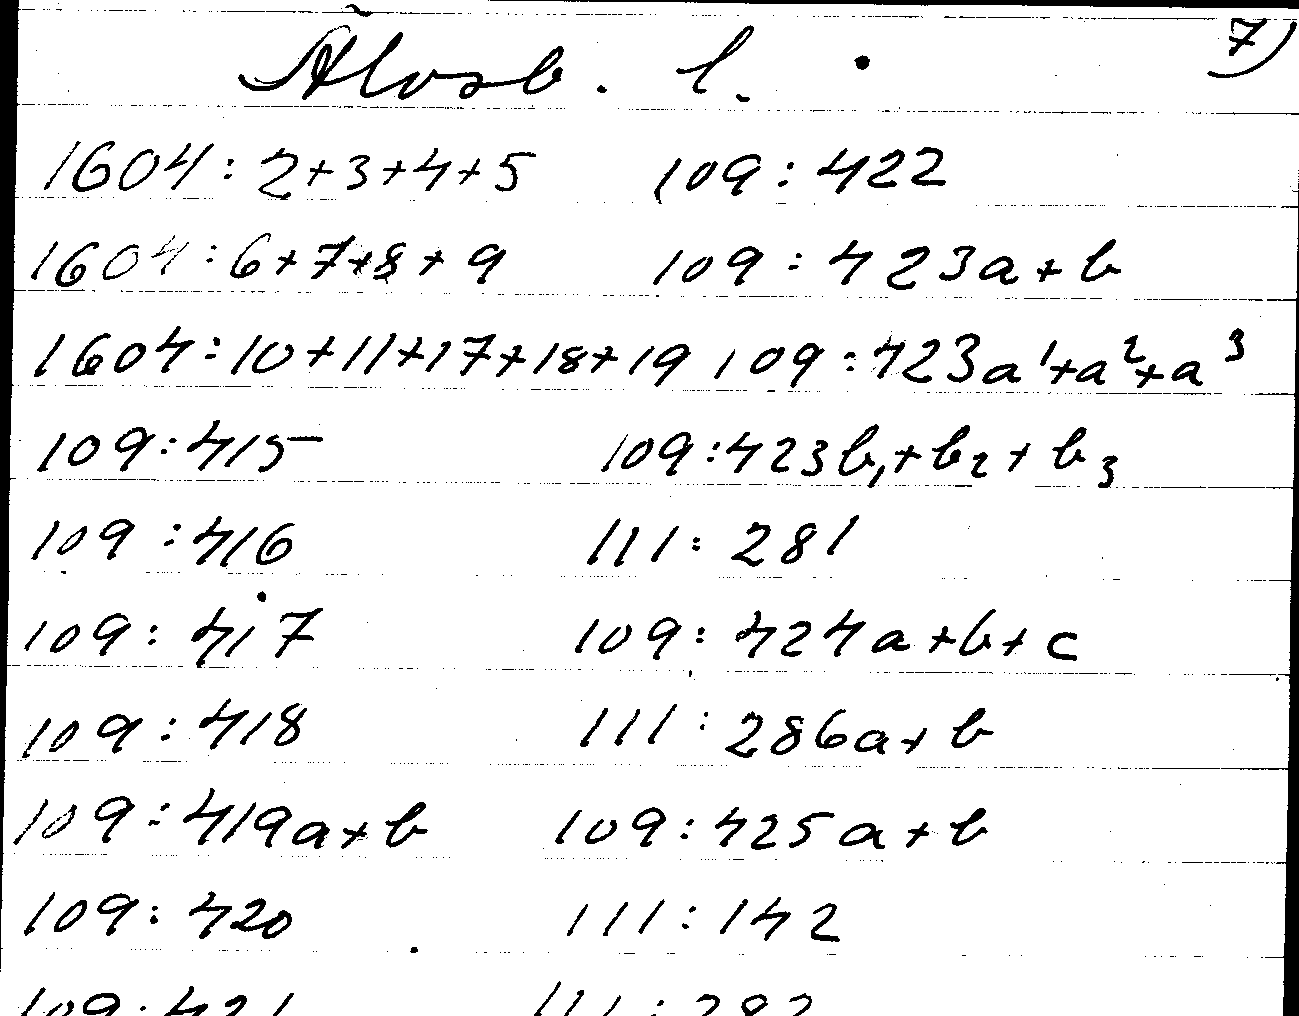 Ålosb. l. 7)
1604: 2+3+4+5 109: 422
1604: 6+7+8+9 109: 423a+b
1604: 10+11+17+18+19 109: 423a¹+a²+a³
109: 415 109: 423b₁+b₂+b₃
109: 416 111: 281
109: 417 109: 424a+b+c
109: 418 111: 286a+b
109: 419a+b 109: 425a+b
109: 420 111: 142
109: 421 111: 282